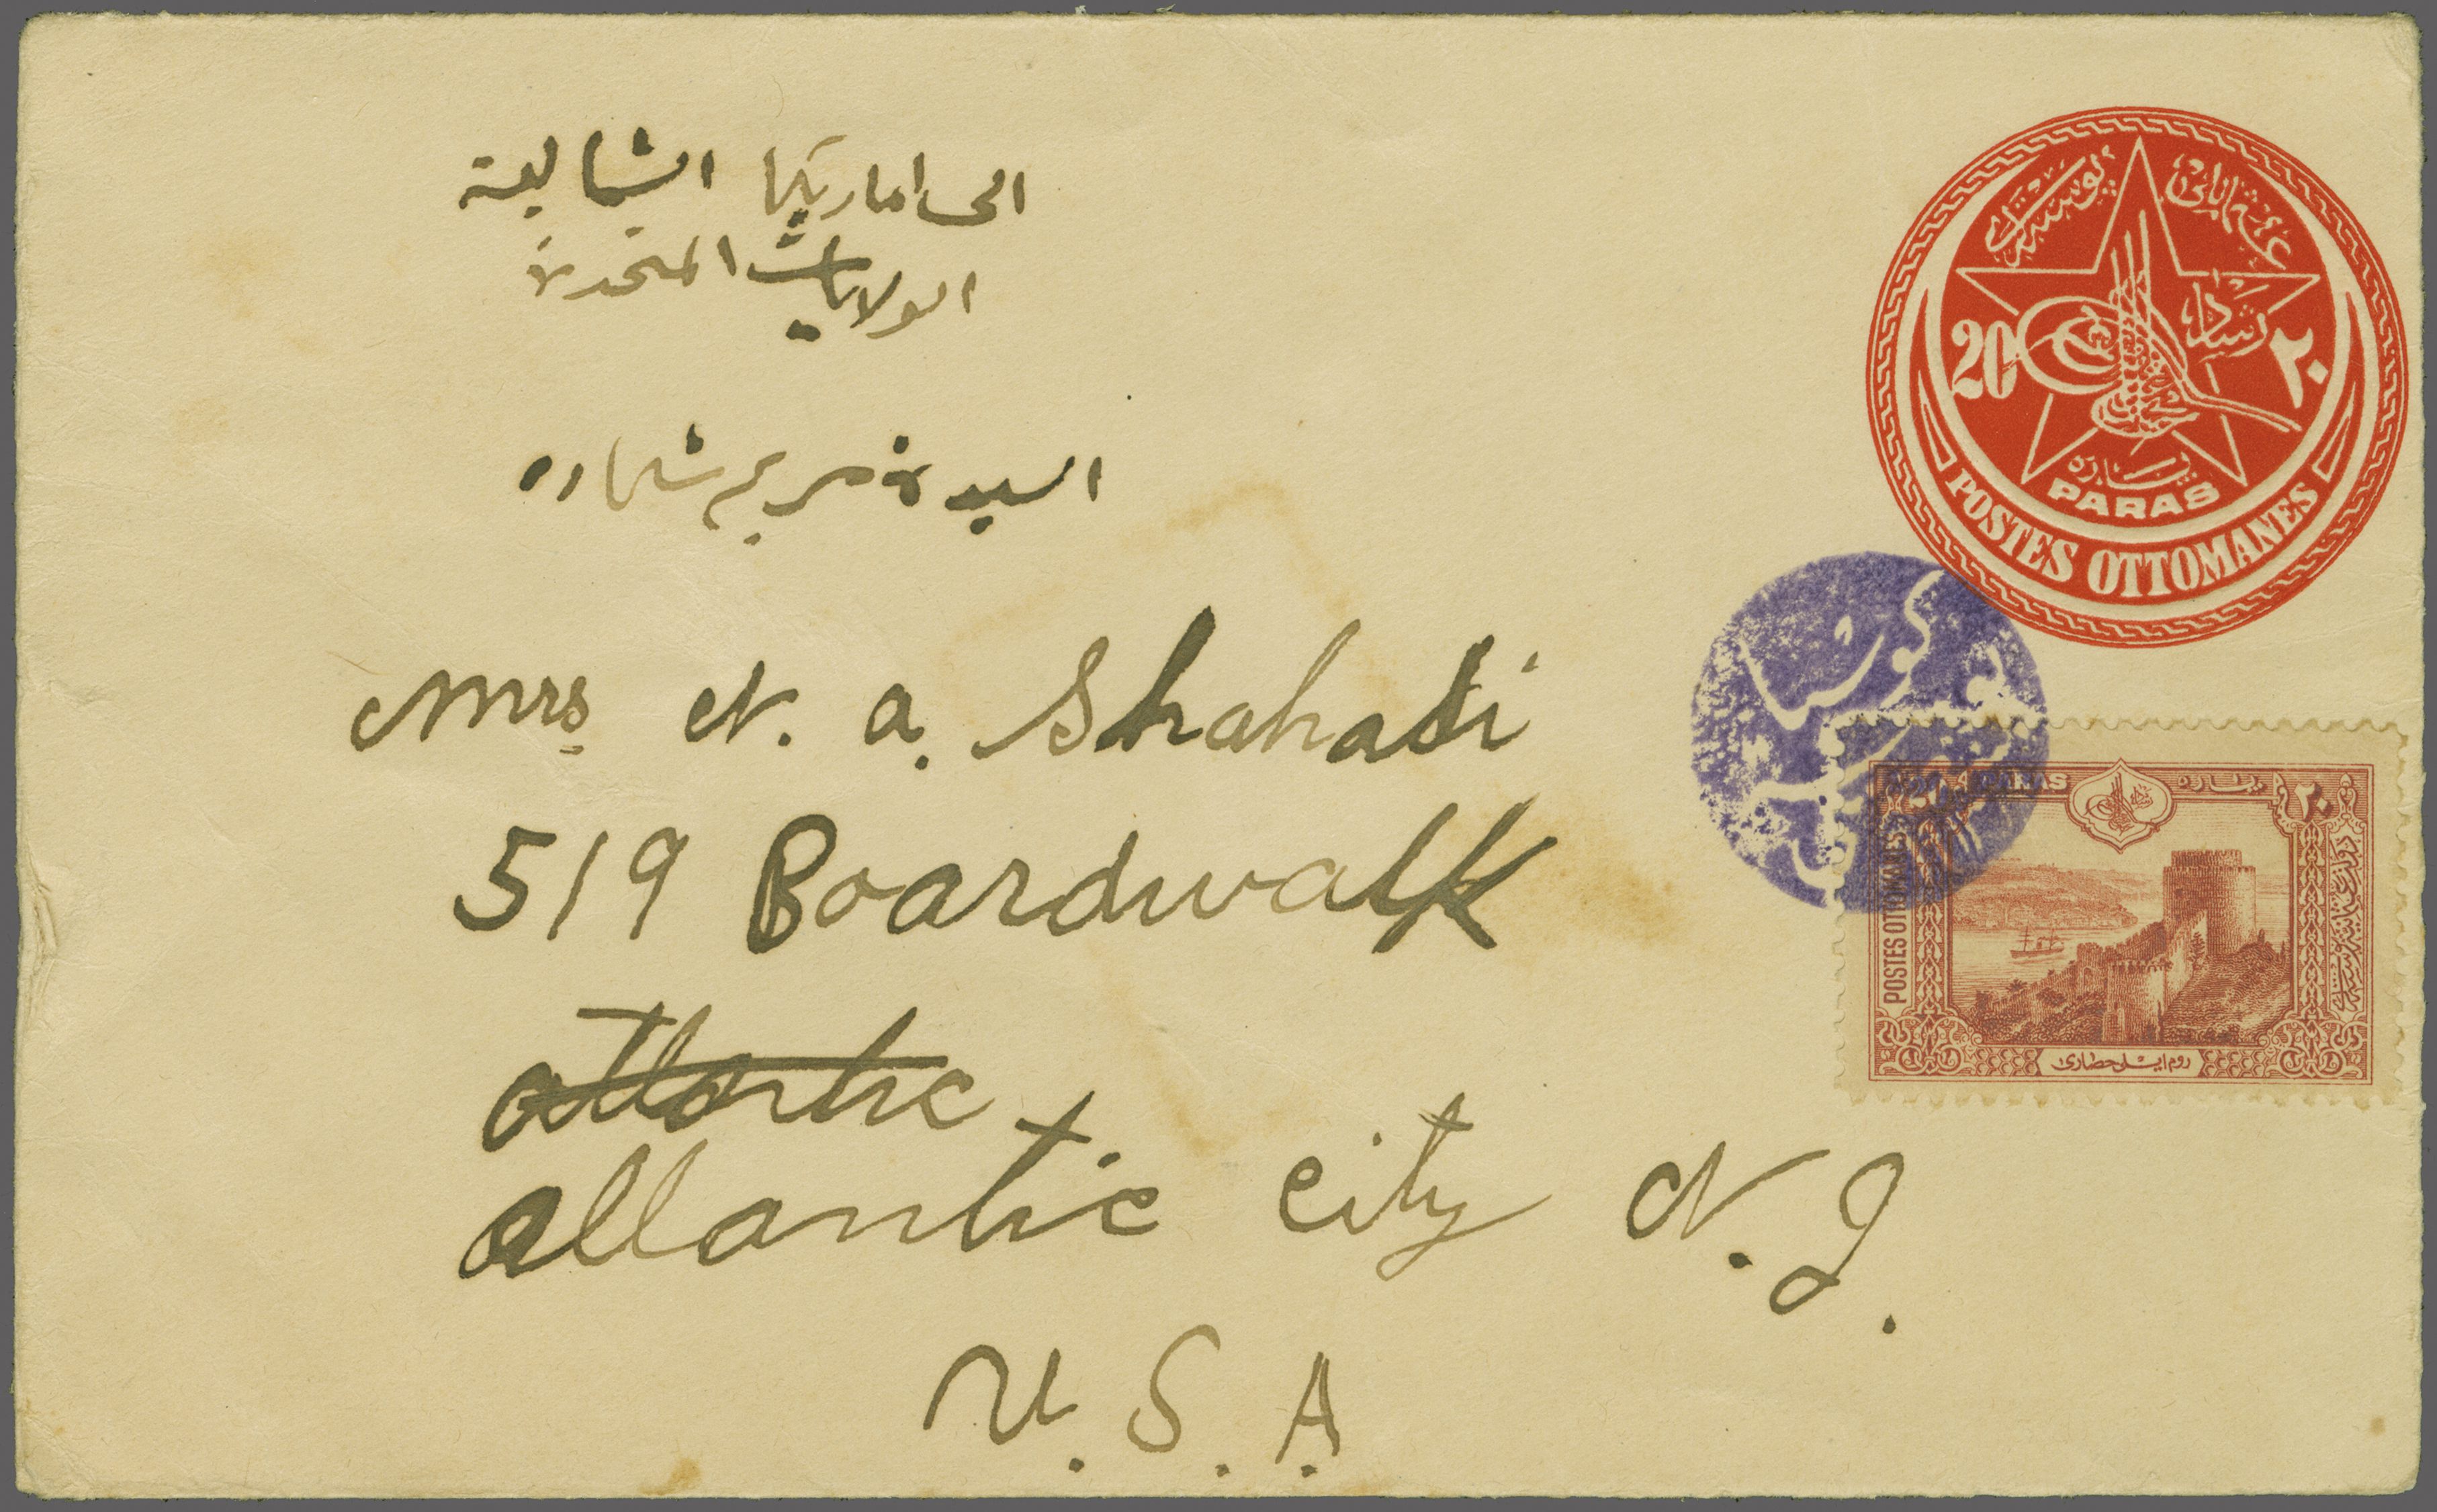 الى اماريكا الشمالية
الولايات المتحدة
السيدة مريم شحاده
Mrs N. a. Shahadi
519 Boardwalk
atlantic
atlantic city N. J.
U. S. A.
پوستەسی
عثمانلی
20
٢٠
پاره
PARAS
POSTES OTTOMANES
PARAS
پاره
٢٠
POSTES OTTOMANES
روم ایلی حصاری